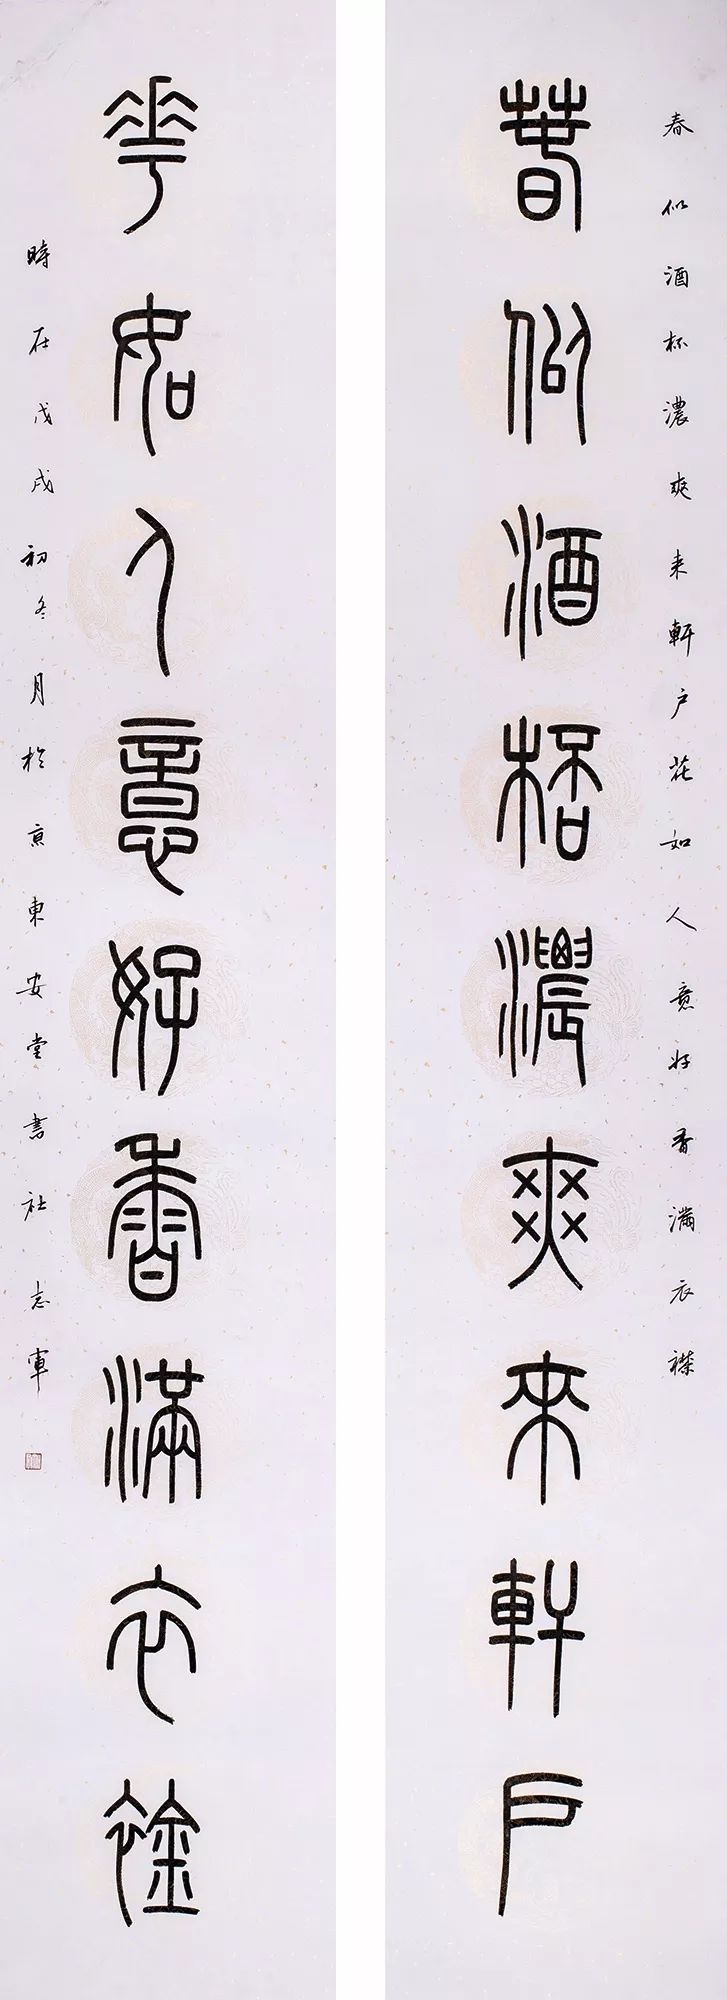 春似酒杯濃爽来軒户花如人意好香滿衣襟
萅佀酒桮濃爽來軒戶
華如人意好香滿衣䘳
時在戊戌初冬月於京東安堂書社志軍